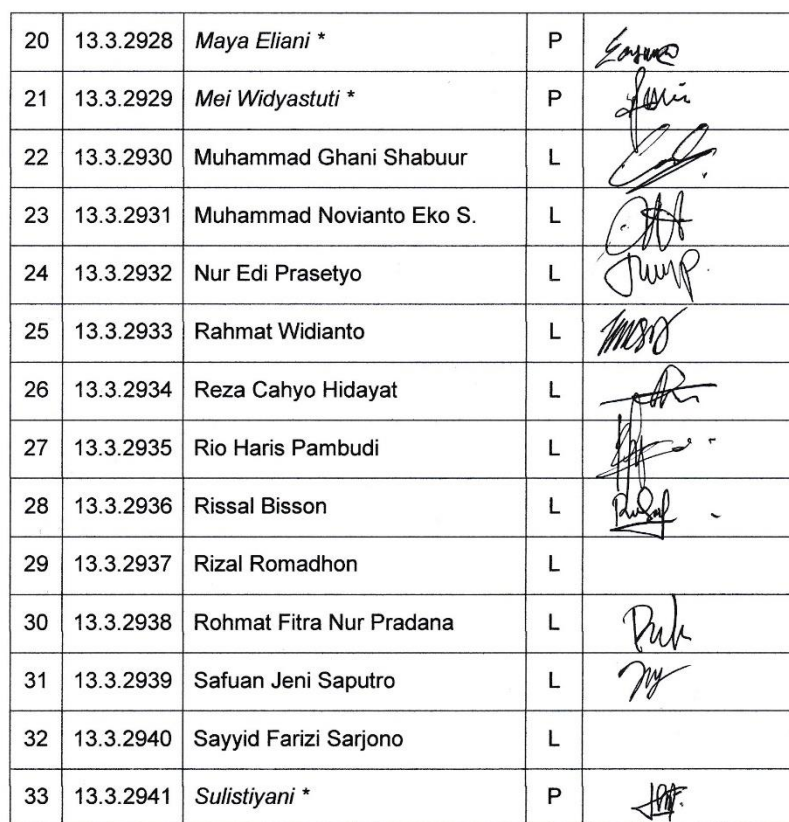 20 13.3.2928 Maya Eliani * P
21 13.3.2929 Mei Widyastuti * P
22 13.3.2930 Muhammad Ghani Shabuur L
23 13.3.2931 Muhammad Novianto Eko S. L
24 13.3.2932 Nur Edi Prasetyo L
25 13.3.2933 Rahmat Widianto L
26 13.3.2934 Reza Cahyo Hidayat L
27 13.3.2935 Rio Haris Pambudi L
28 13.3.2936 Rissal Bisson L
29 13.3.2937 Rizal Romadhon L
30 13.3.2938 Rohmat Fitra Nur Pradana L
31 13.3.2939 Safuan Jeni Saputro L
32 13.3.2940 Sayyid Farizi Sarjono L
33 13.3.2941 Sulistiyani * P